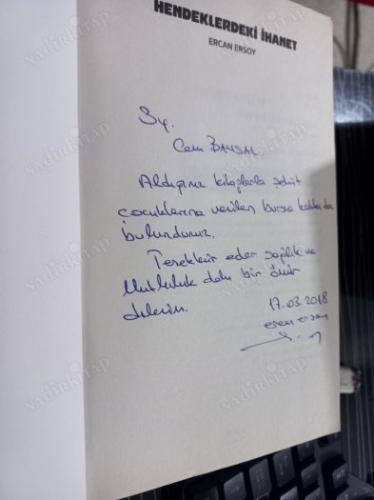 HENDEKLERDEKİ İHANET
ERCAN ERSOY
Sy.
Cem BAYSAL
Aldığınız kitaplarla şehit
çocuklarına verilen bursa katkıda
bulundunuz.
Teşekkür eder sağlık ve
Mutluluk dolu bir ömür
dilerim.
17.03.2018
nadirkitap